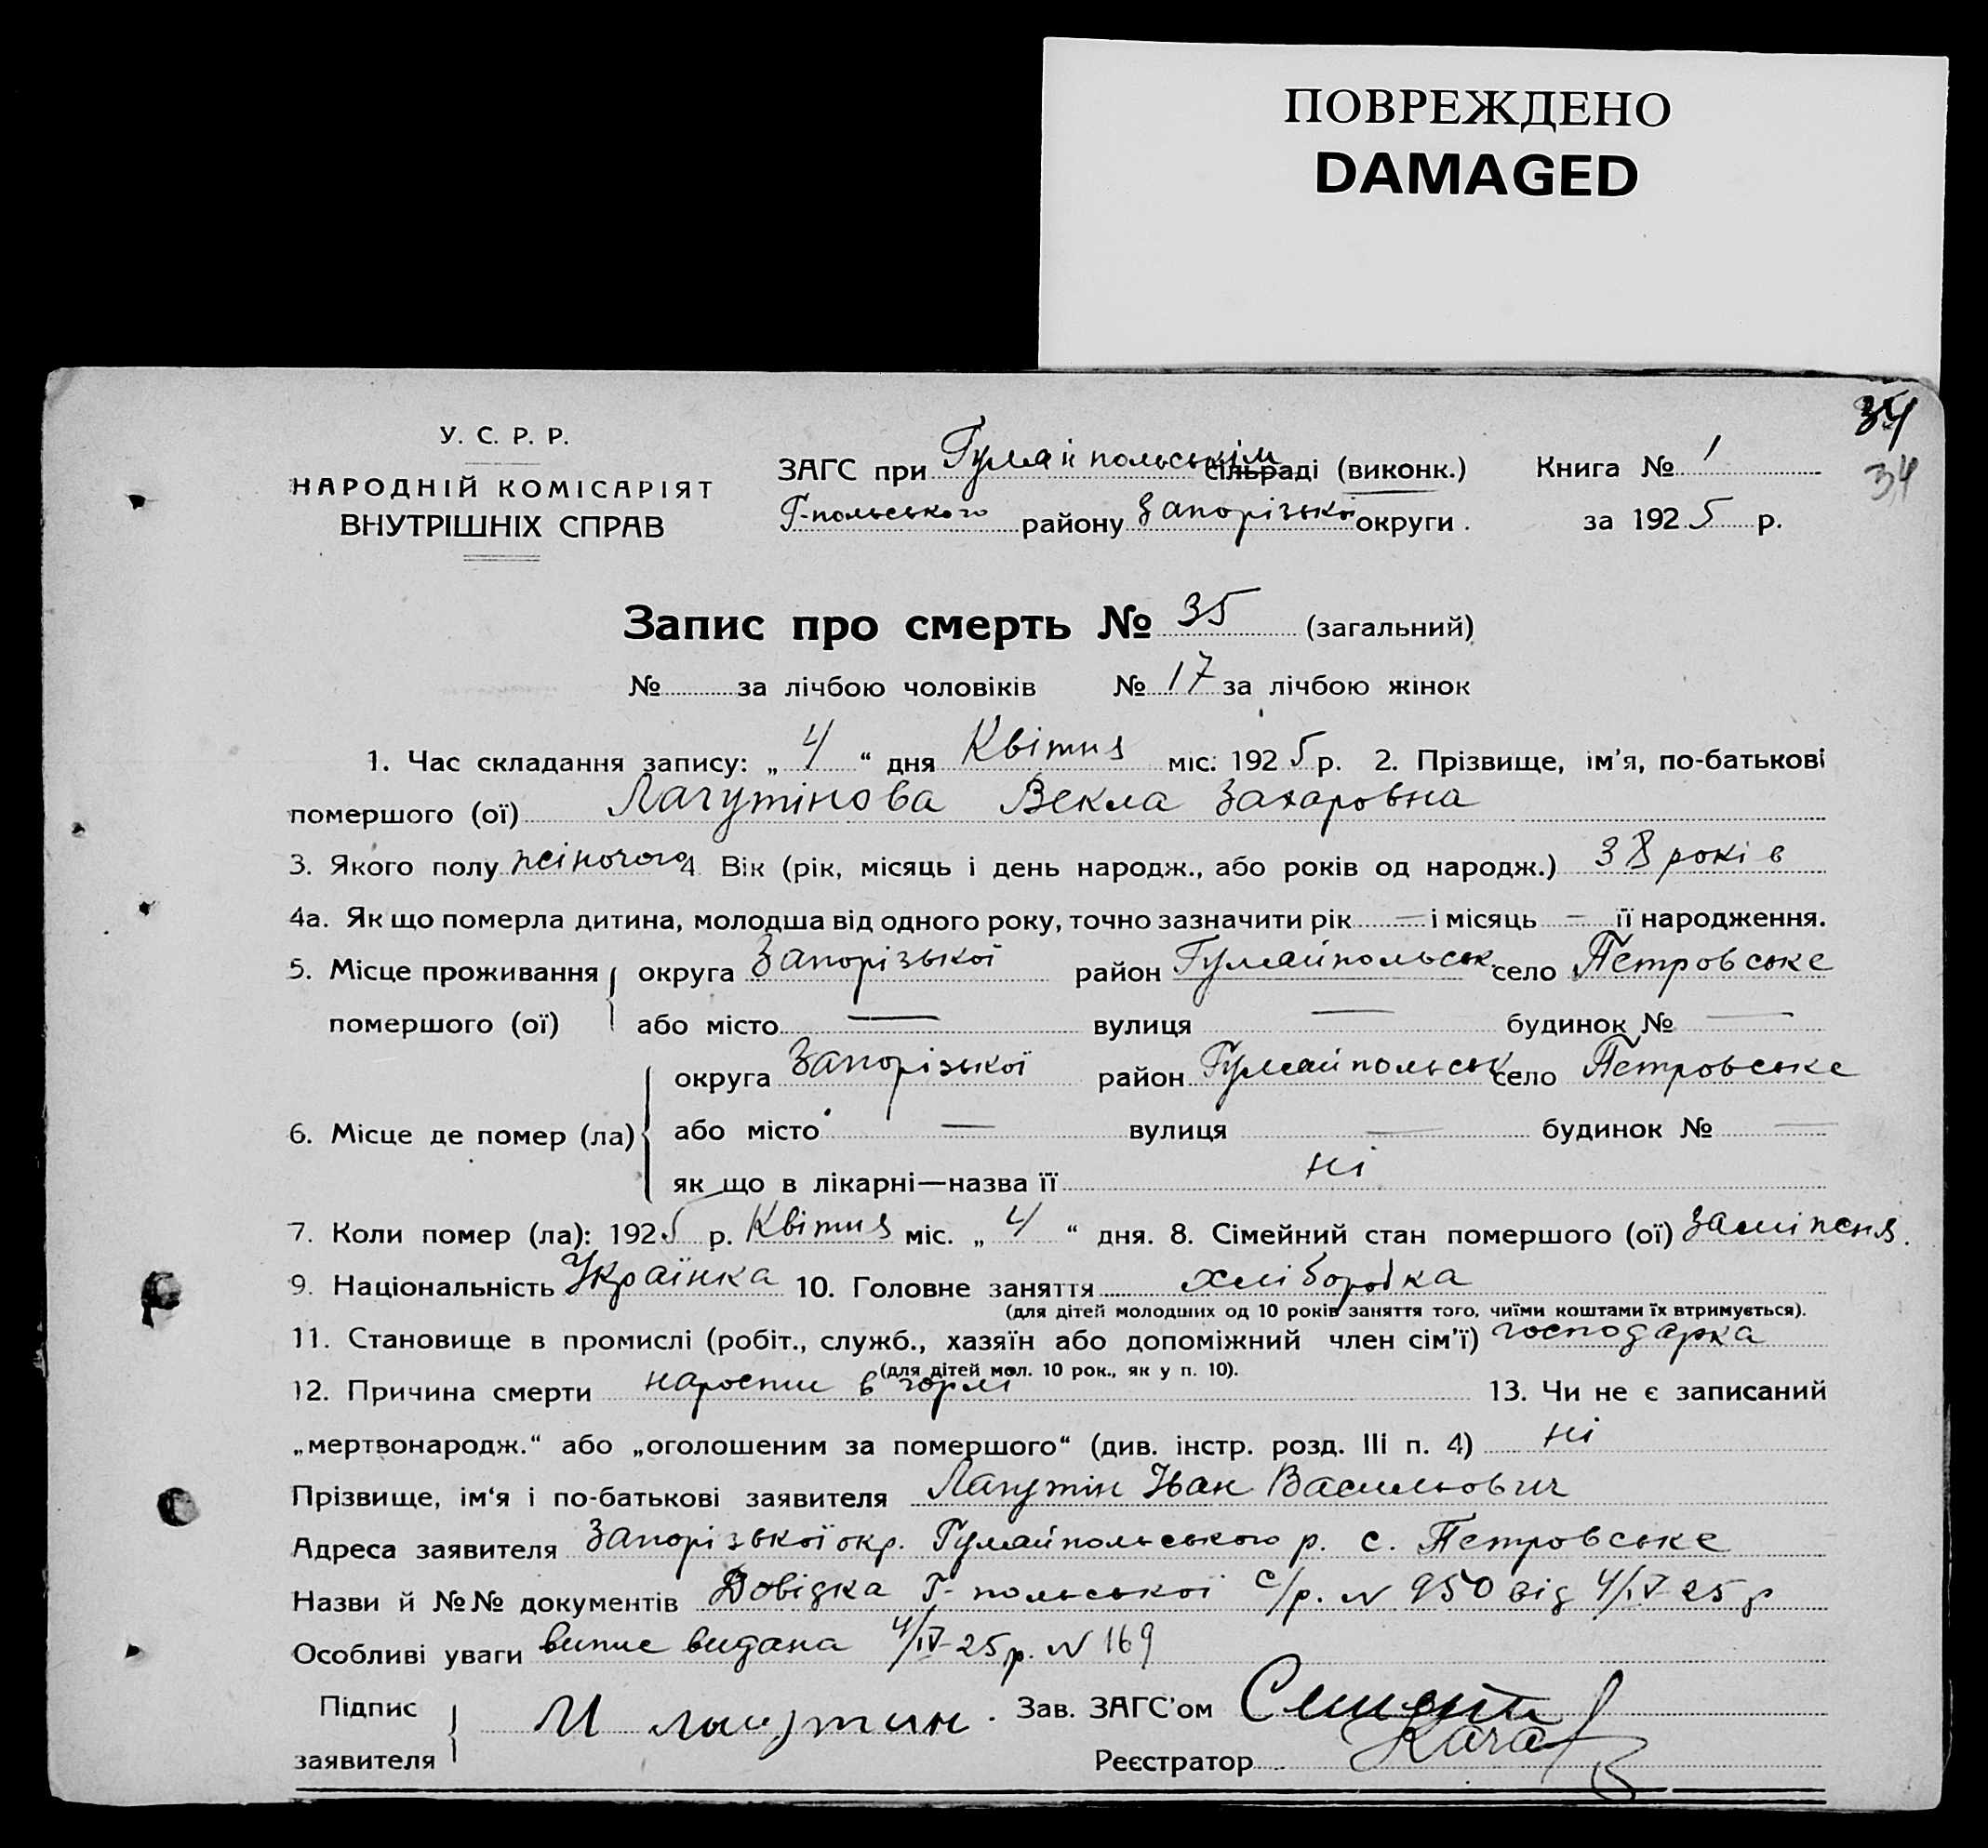 ПОВРЕЖДЕНО
DAMAGED
34
34
У. С. Р. Р.
НАРОДНІЙ КОМІСАРІЯТ
ВНУТРІШНІХ СПРАВ
ЗАГС при Гуляйпольськім сільраді (виконк.) Книга № 1
Г-польського району Запорізької округи. за 1925 р.
Запис про смерть № 35 (загальний)
№ за лічбою чоловіків № 17 за лічбою жінок
1. Час складання запису: „4“ дня Квітня міс. 1925 р. 2. Прізвище, ім'я, по-батькові
помершого (ої) Лагутінова Векла Захаровна
3. Якого полу жіночого 4 Вік (рік, місяць і день народж., або років од народж.) 38 років
4а. Як що померла дитина, молодша від одного року, точно зазначити рік — і місяць — її народження.
5. Місце проживання округа Запорізької район Гуляйпольськ село Петровське
помершого (ої) або місто — вулиця — будинок № —
округа Запорізької район Гуляйпольськ село Петровське
6. Місце де помер (ла) або місто — вулиця — будинок № —
як що в лікарні—назва її ні
7. Коли помер (ла): 1925 р. Квітня міс. „4“ дня. 8. Сімейний стан помершого (ої) заміжня.
9. Національність Українка 10. Головне заняття хліборобка
(для дітей молодших од 10 років заняття того, чиїми коштами їх втримується).
11. Становище в промислі (робіт., служб., хазяїн або допоміжний член сім'ї) господарка
(для дітей мол. 10 рок., як у п. 10).
12. Причина смерти нарости в горлі 13. Чи не є записаний
„мертвонародж.“ або „оголошеним за помершого“ (див. інстр. розд. III п. 4) ні
Прізвище, ім'я і по-батькові заявителя Лагутін Іван Васильович
Адреса заявителя Запорізької окр. Гуляйпольського р. с. Петровське
Назви й №№ документів Довідка Г-польської с/р. N 950 від 4/IV-25 р
Особливі уваги випис видана 4/IV-25 р. N 169
Підпис
заявителя И Лагутин. Зав. ЗАГС'ом
Реєстратор